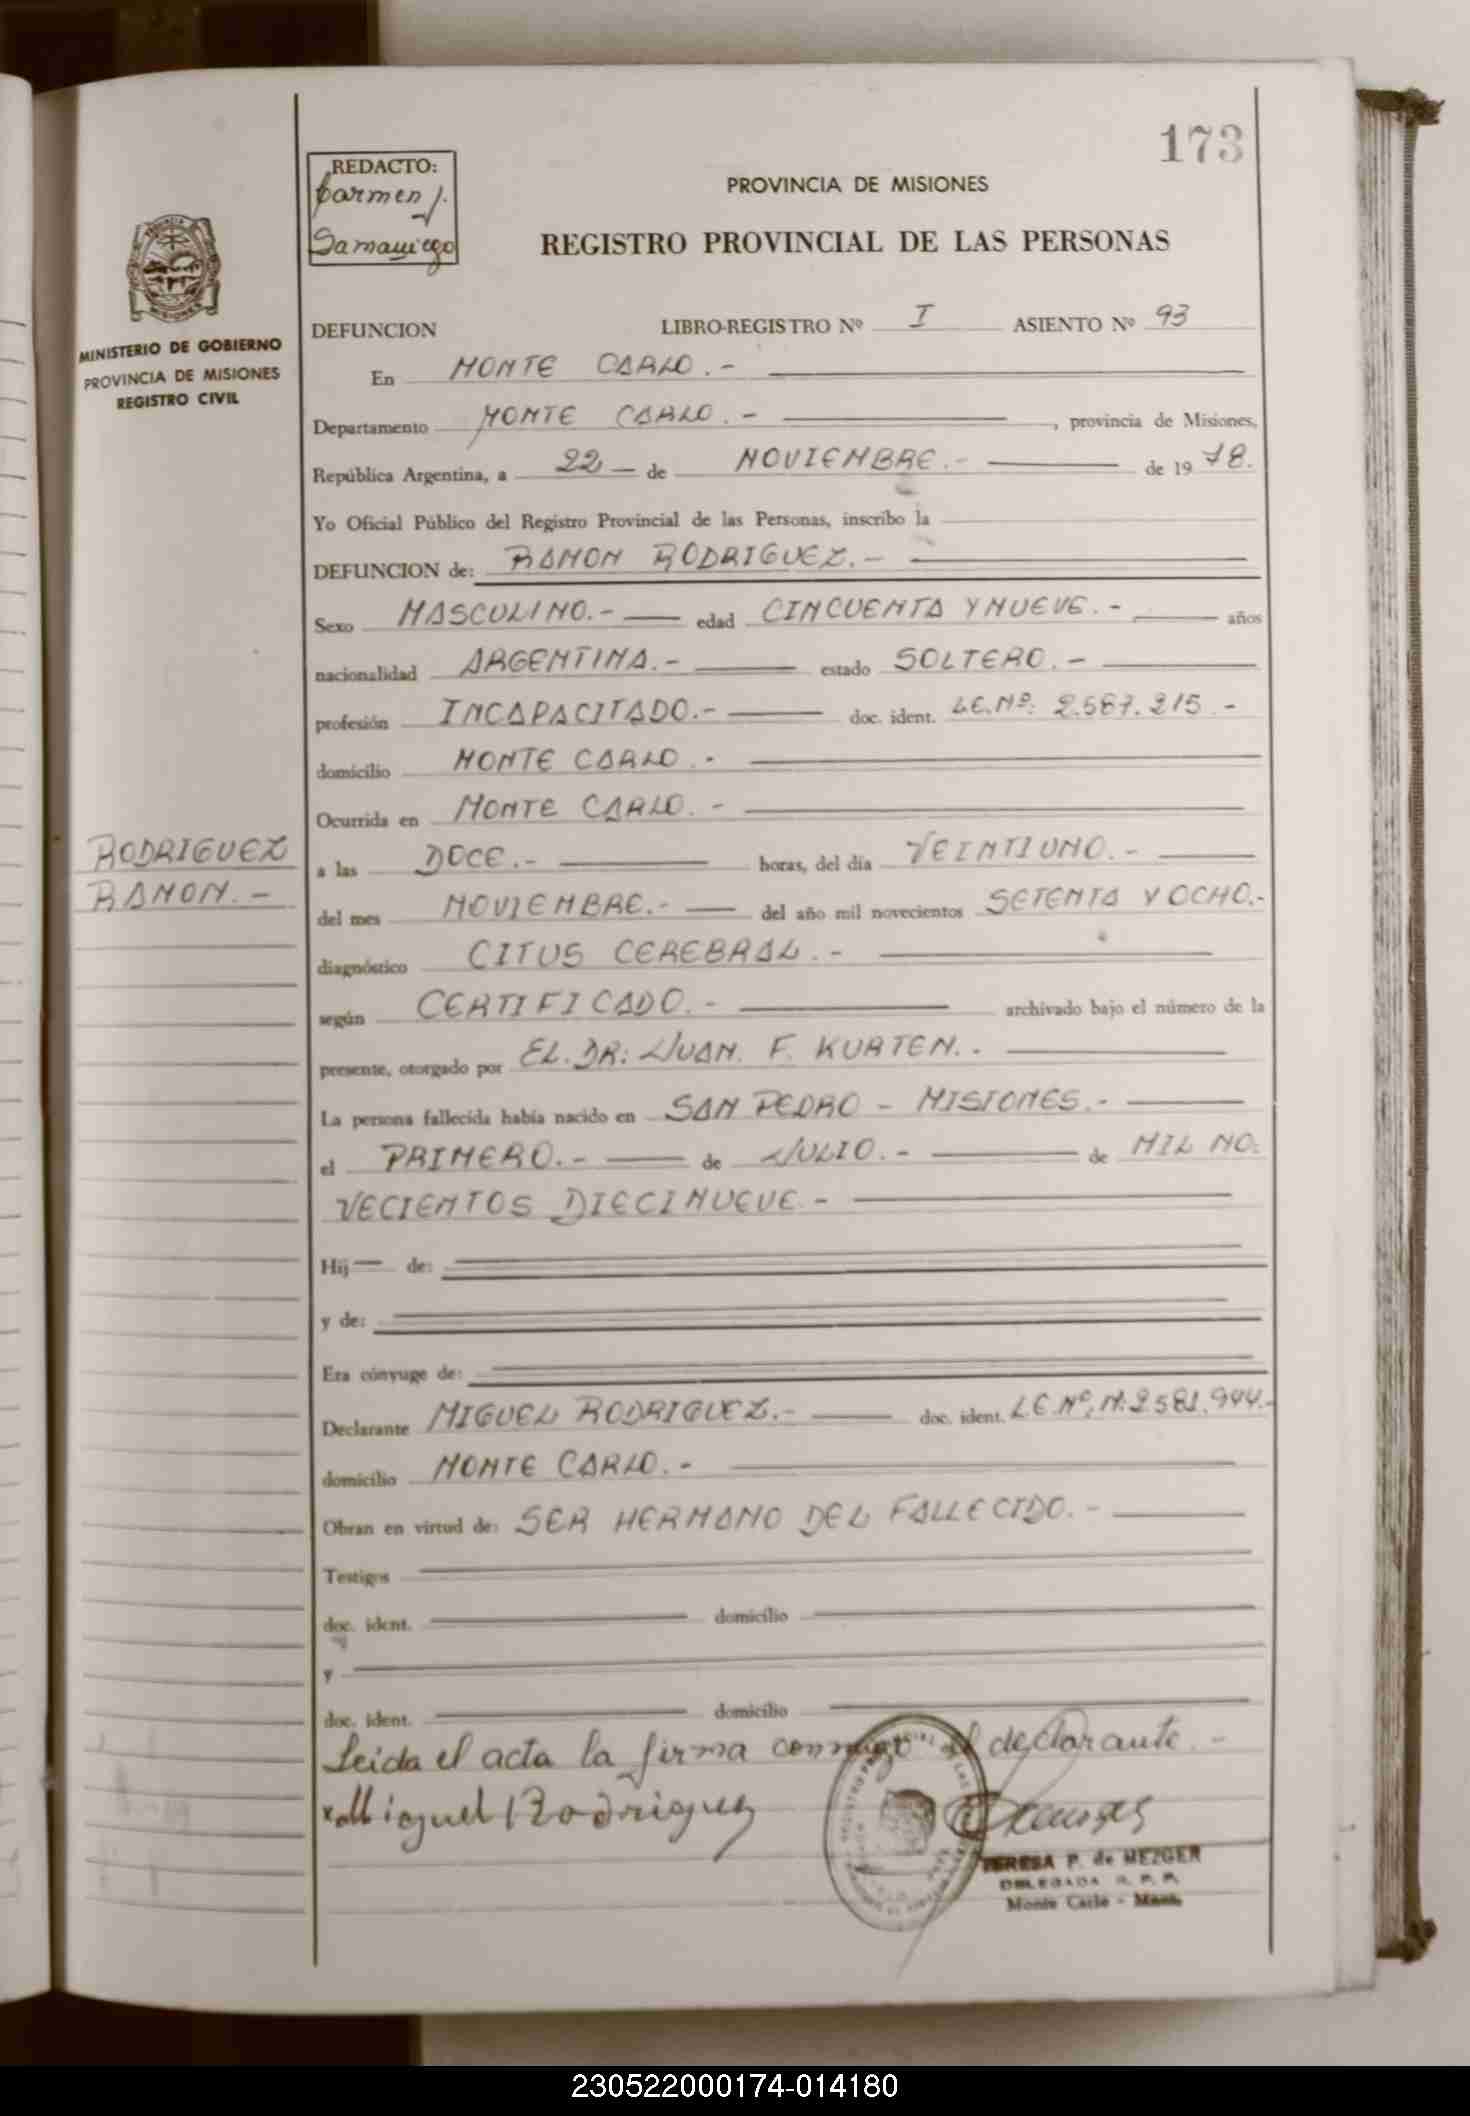 173
REDACTO:
Carmen J.
Samaniego
PROVINCIA DE MISIONES
REGISTRO PROVINCIAL DE LAS PERSONAS
MINISTERIO DE GOBIERNO
PROVINCIA DE MISIONES
REGISTRO CIVIL
DEFUNCION LIBRO-REGISTRO Nº I ASIENTO Nº 93
En MONTE CARLO.-
Departamento MONTE CARLO.- , provincia de Misiones,
República Argentina, a 22 de NOVIEMBRE.- de 19 78.
Yo Oficial Público del Registro Provincial de las Personas, inscribo la
DEFUNCION de: RAMON RODRIGUEZ.-
Sexo MASCULINO.- edad CINCUENTA Y NUEVE.- años
nacionalidad ARGENTINA.- estado SOLTERO.-
profesión INCAPACITADO.- doc. ident. LE.Nº: 2.587.215.-
domicilio MONTE CARLO.-
Ocurrida en MONTE CARLO.-
RODRIGUEZ
RAMON.-
a las DOCE.- horas, del día VEINTIUNO.-
del mes NOVIEMBRE.- del año mil novecientos SETENTA Y OCHO.-
diagnóstico CITUS CEREBRAL.-
según CERTIFICADO.- archivado bajo el número de la
presente, otorgado por EL.DR: JUAN. F. KURTEN.-
La persona fallecida había nacido en SAN PEDRO - MISIONES.-
el PRIMERO.- de JULIO.- de MIL NO.
VECIENTOS DIECINUEVE.-
Hij de:
y de:
Era cónyuge de:
Declarante MIGUEL RODRIGUEZ.- doc. ident. LE.Nº.M.2581.944.-
domicilio MONTE CARLO.-
Obran en virtud de: SER HERMANO DEL FALLECIDO.-
Testigos
doc. ident. domicilio
y
doc. ident. domicilio
Leida el acta la firma conmigo el declarante.-
Miguel Rodriguez
TERESA P. de MEZGER
DELEGADA R. P. P.
Monte Carlo - Mnes.
230522000174-014180